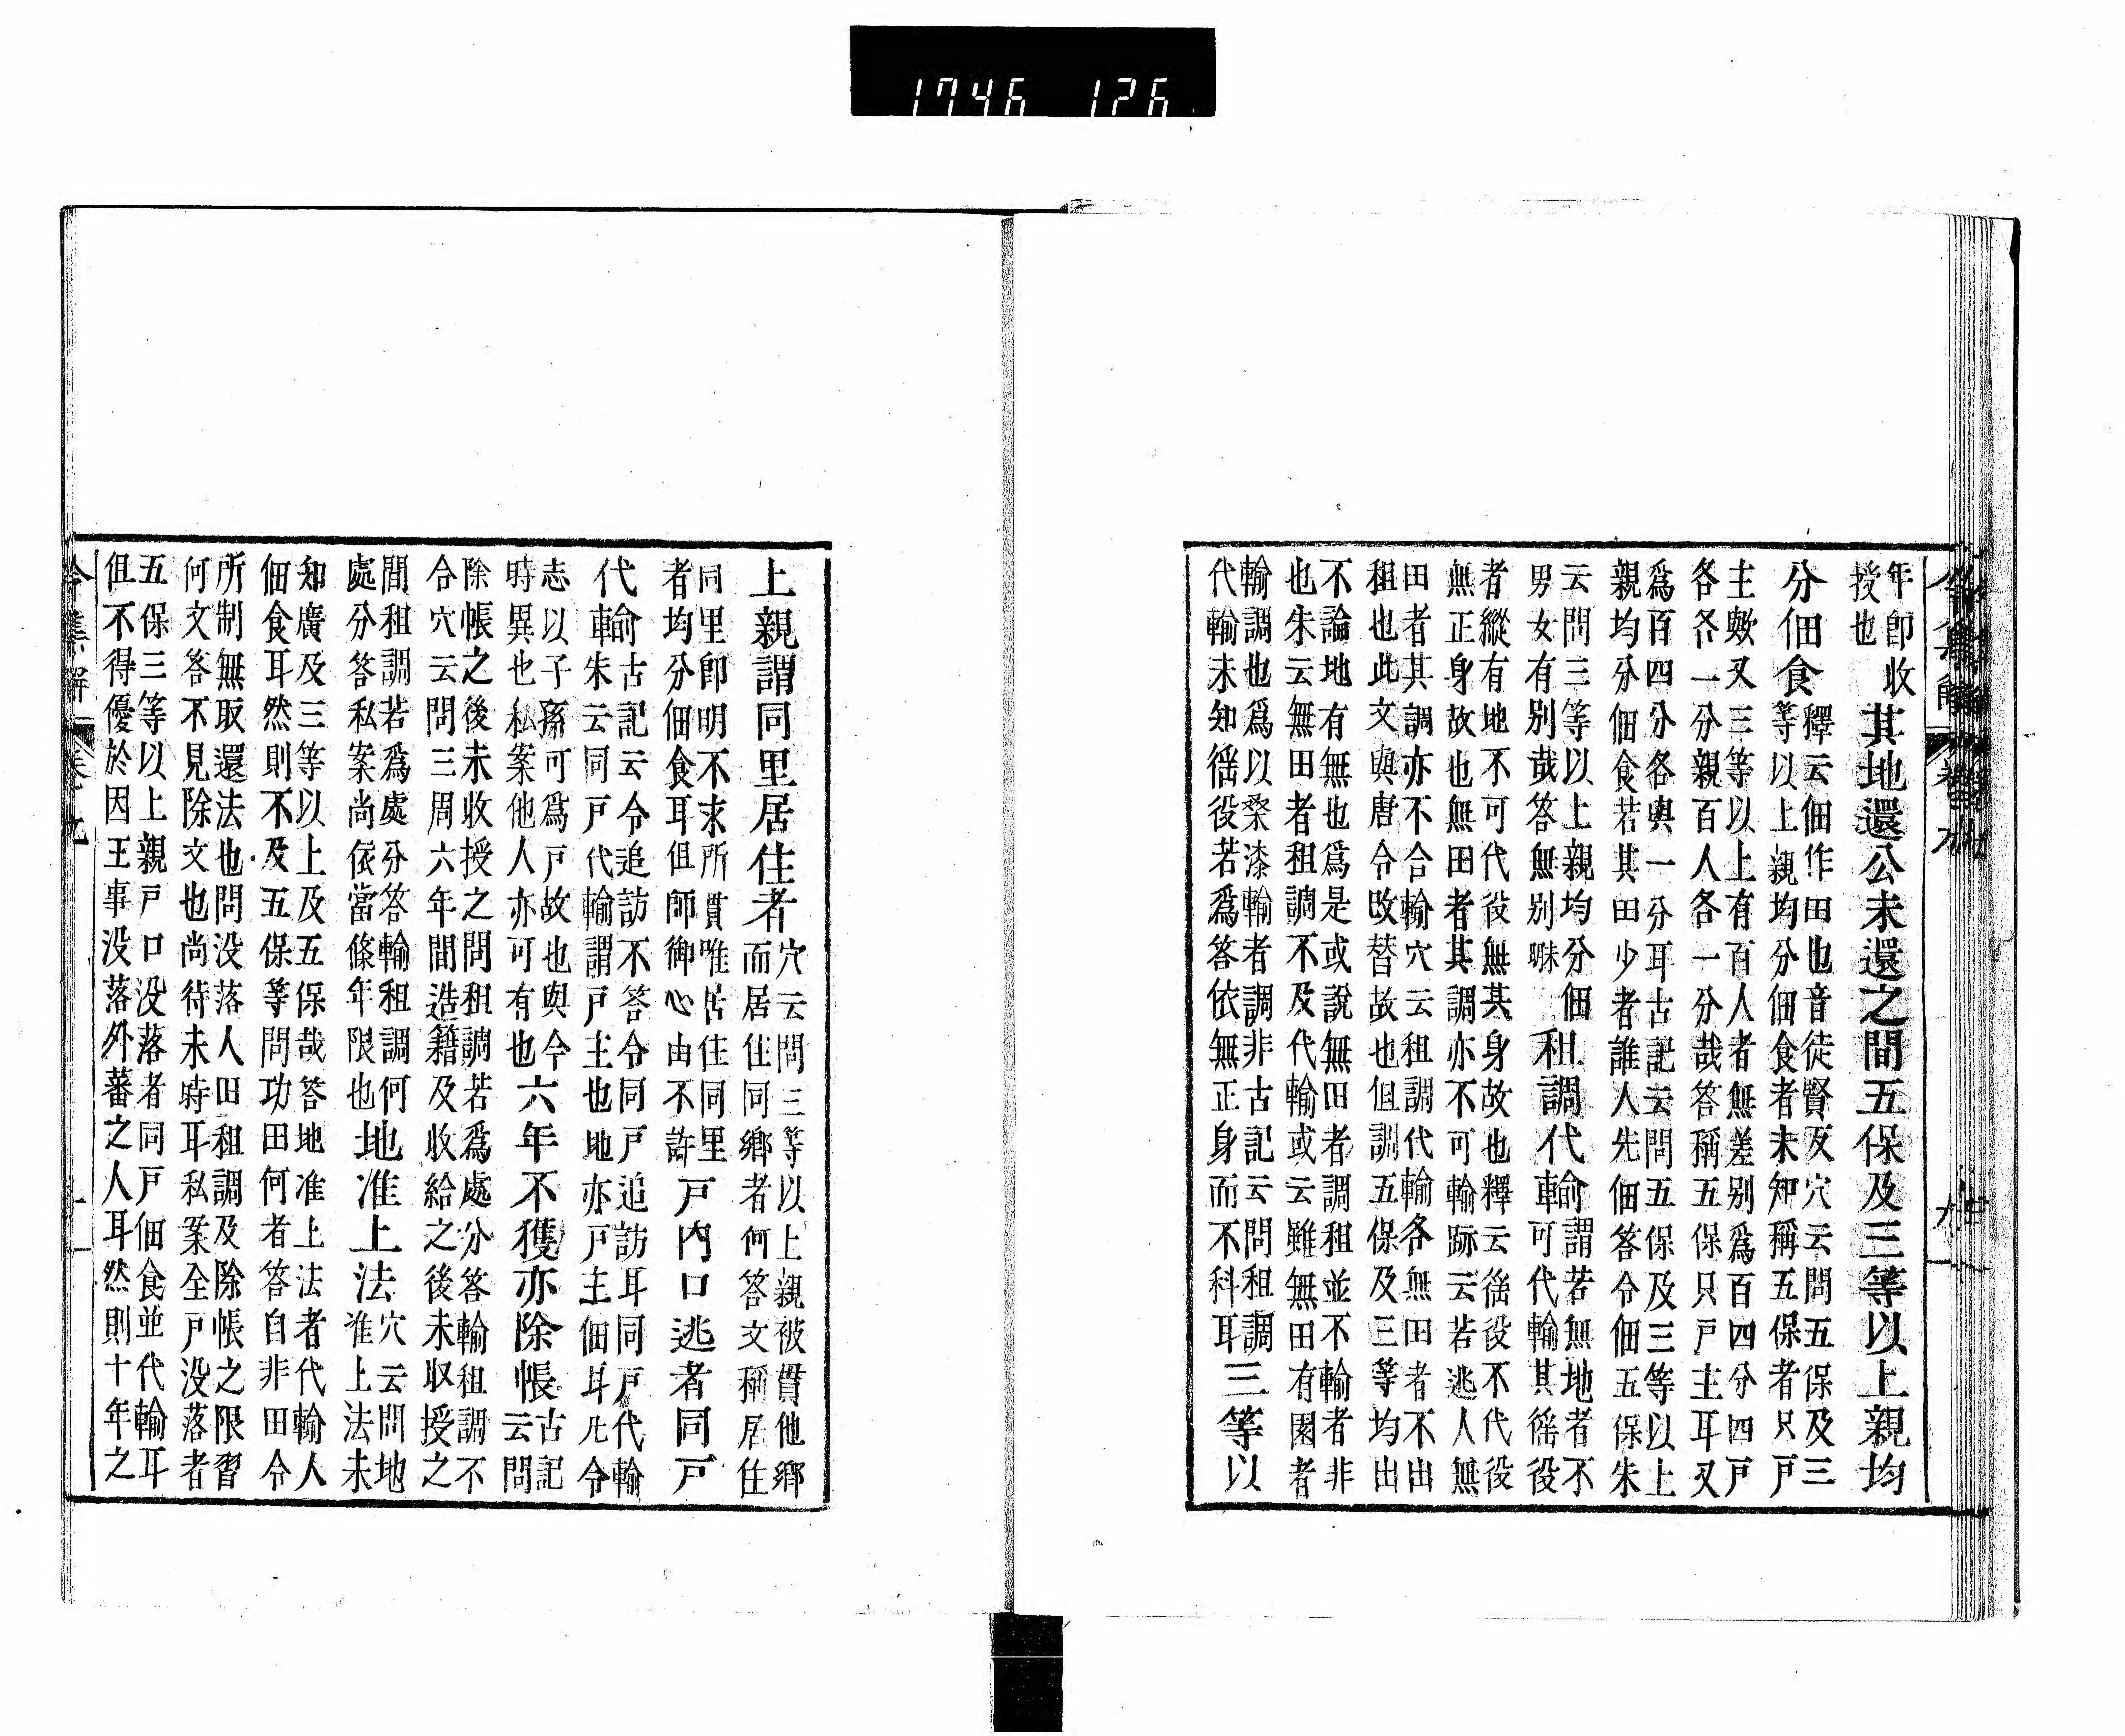 1746 126
年即收
授也
其地還公未還之間五保及三等以上親均
分佃食
釋云佃作田也音徒賢反穴云問五保及三
等以上親均分佃食者未知稱五保者只戸
主歟又三等以上有百人者無差別爲百四分四戸
各各一分親百人各一分哉答稱五保只戸主耳又
爲百四分各與一分耳古記云問五保及三等以上
親均分佃食若其田少者誰人先佃答令佃五保朱
云問三等以上親均分佃
男女有別哉答無別眯
租調代輸
謂若無地者不
可代輸其徭役
者縱有地不可代役無其身故也釋云徭役不代役
無正身故也無田者其調亦不可輸跡云若逃人無
田者其調亦不合輸穴云租調代輸各無田者不出
租也此文與唐令改替故也但調五保及三等均出
不論地有無也爲是或說無田者調租並不輸者非
也朱云無田者租調不及代輸或云雖無田有園者
輸調也爲以桑漆輸者調非古記云問租調
代輸未知徭役若爲答依無正身而不科耳
三等以
上親謂同里居住者
穴云問三等以上親被貫他鄉
而居住同鄉者何答文稱居住
同里即明不求所貫唯居住同里
者均分佃食耳但師御心由不許
戸内口逃者同戸
代輸
古記云令追訪不答令同戸追訪耳同戸代輸
朱云同戸代輸謂戸主也地亦戸主佃耳凡令
志以子孫可爲戸故也與今
時異也私案他人亦可有也
六年不獲亦除帳
古記
云問
除帳之後未收授之問租調若爲處分答輸租調不
合穴云問三周六年間造籍及收給之後未取授之
間租調若爲處分答輸租調何
處分答私案尚依當條年限也
地准上法
穴云問地
准上法未
知廣及三等以上及五保哉答地准上法者代輸人
佃食耳然則不及五保等問功田何者答自非田令
所制無取還法也問没落人田租調及除帳之限習
何文答不見除文也尚待未時耳私案全戸没落者
五保三等以上親戸口没落者同戸佃食並代輸耳
但不得優於因王事没落外蕃之人耳然則十年之